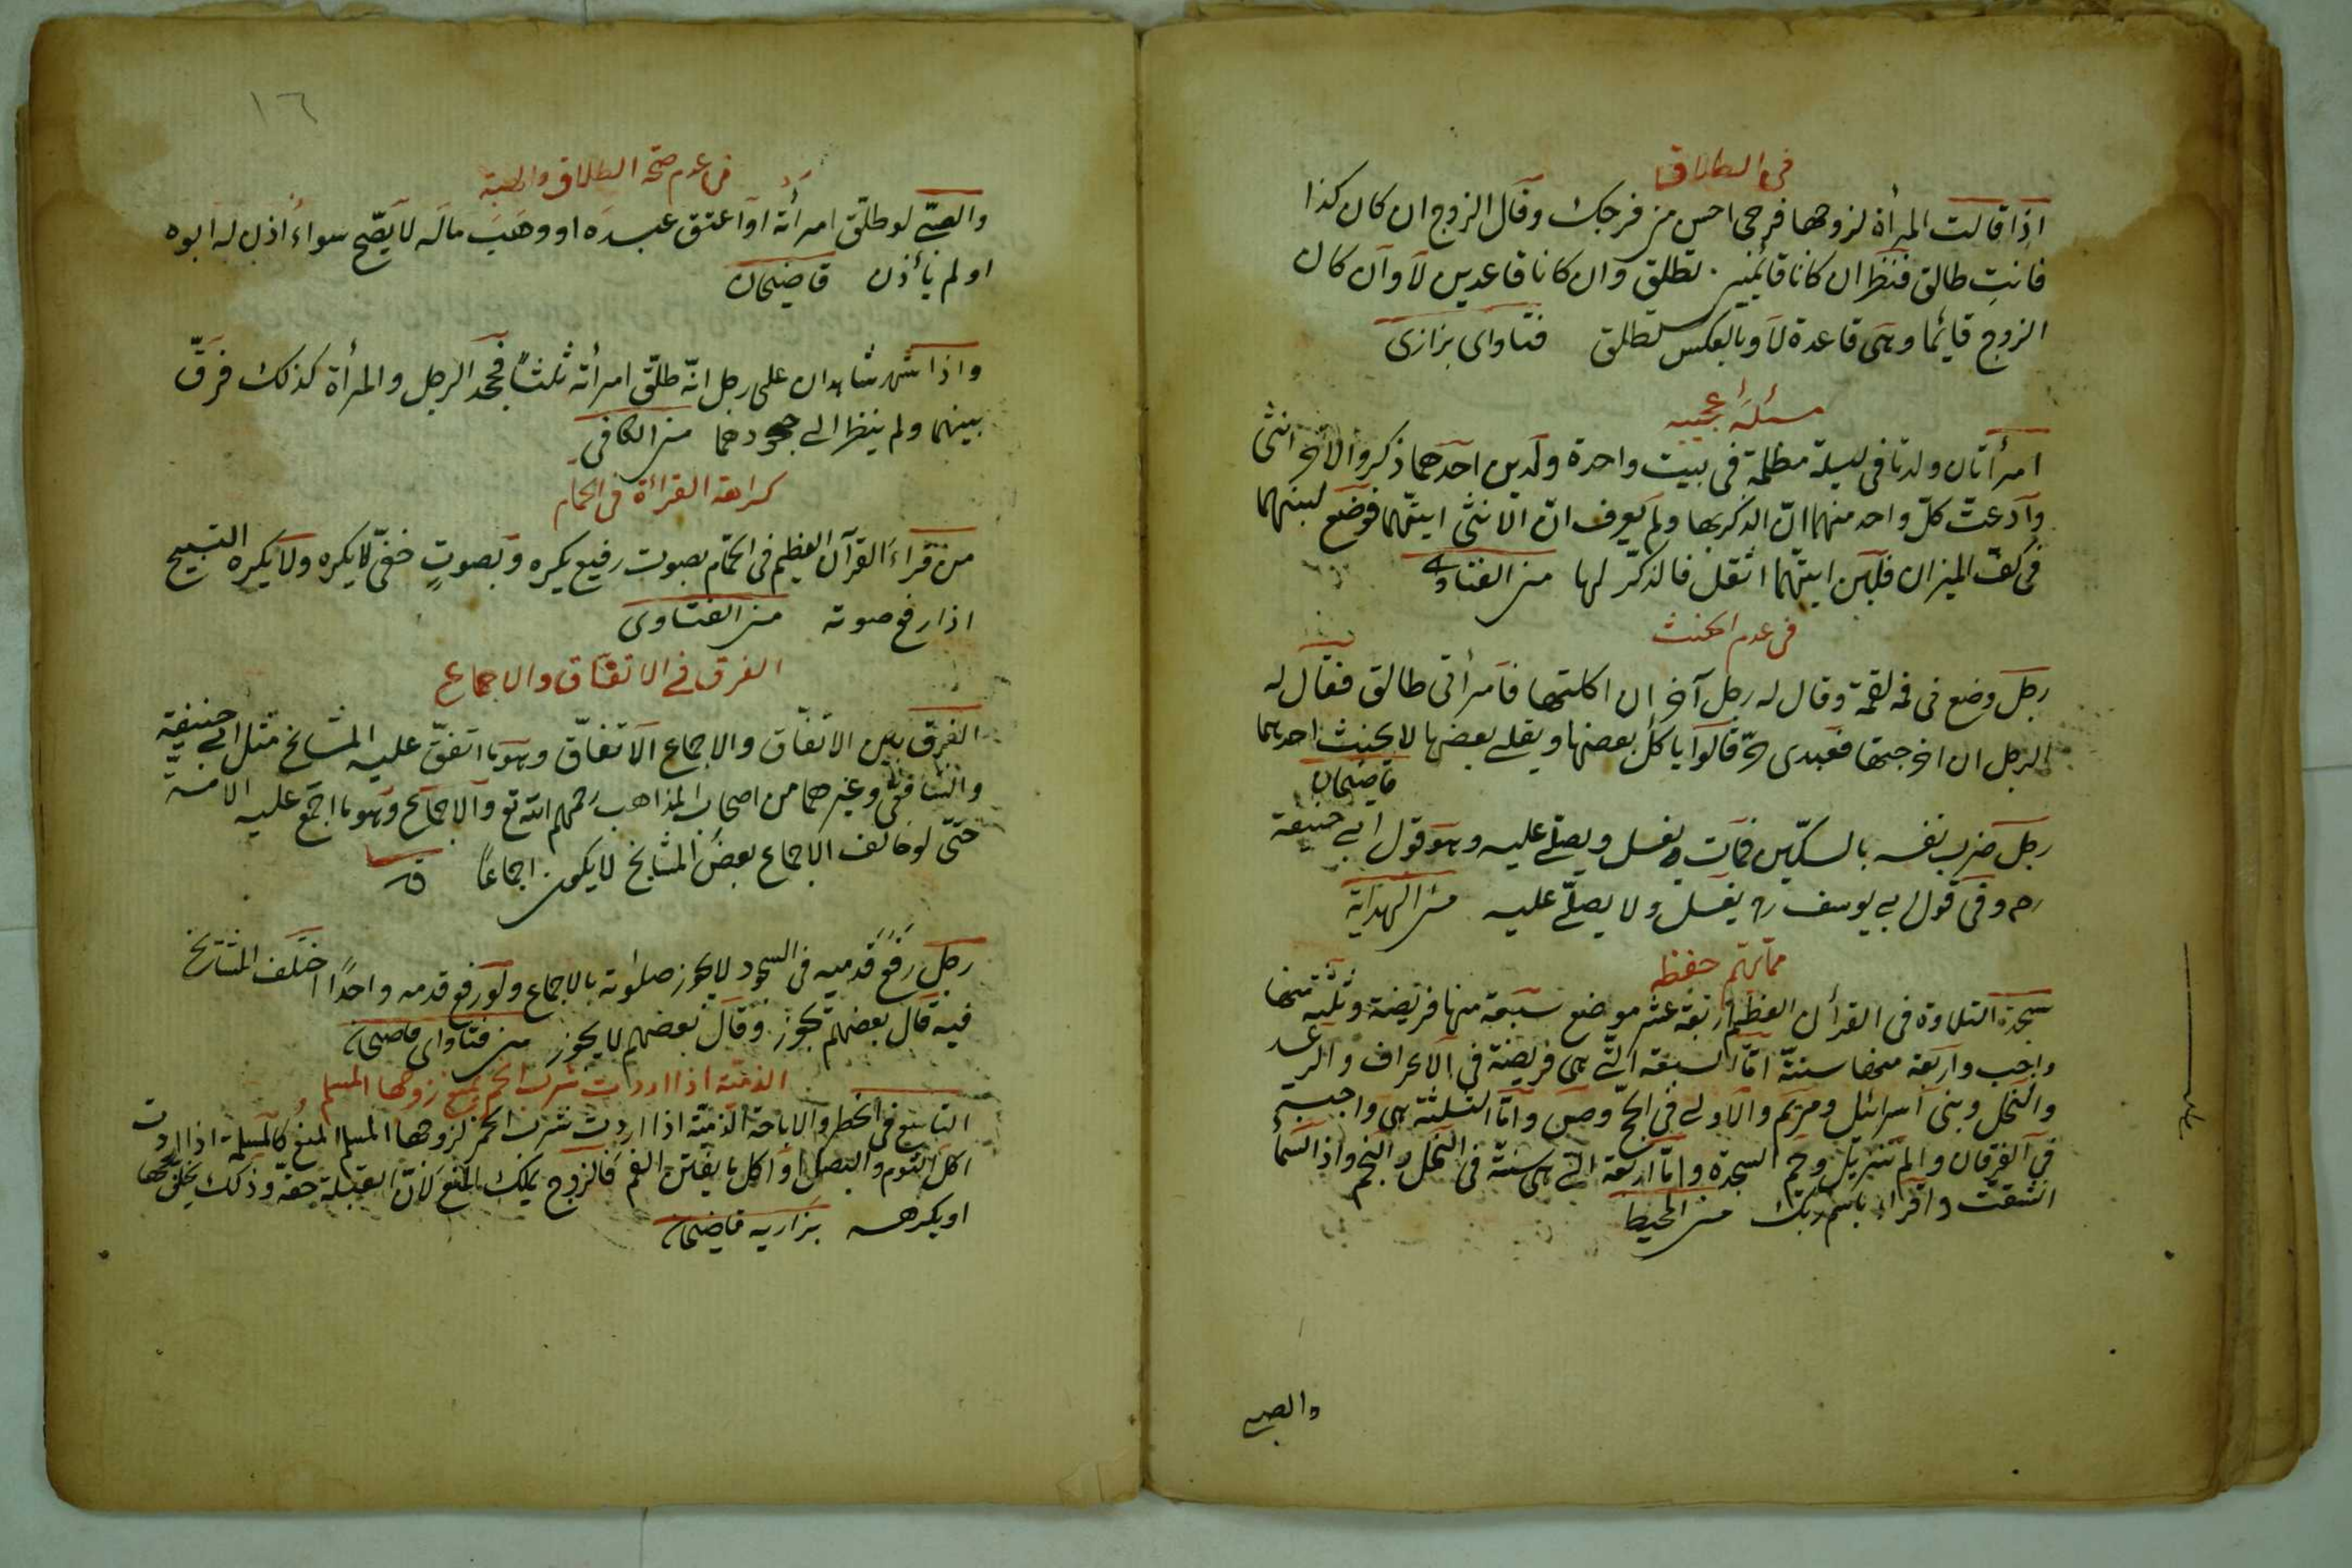 في الطلاق
اذا قالت المرأة لزوجها فرجى احسن من فرجك وقال الزوج ان كان كذا
فانتِ طالق فنظر ان كانا قائمين تطلق وان كانا قاعدين لا وان كان
الزوج قائما وهى قاعدة لا وبالعكس تطلق فتاواى بزازى
مسئلة عجيبه
امرأتان ولدتا فى ليلة مظلمة فى بيت واحدة ولدين احدهما ذكر والاخر انثى
وادعت كلّ واحد منهما انّ الذكر بها ولم يعرف انّ الانثى ايتهما فوضع لبنهما
فى كفّ الميزان فلبن ايتهما اثقل فالذكر لها من الفتاوى
فى عدم الحنث
رجل وضع فى فمه لقمة وقال له رجل آخر ان اكلتها فامرأتى طالق فقال له
الرجل ان اخرجتها فعبدى حر قالوا ياكل بعضها ويقلى بعضها لا يحنث احديهما
قاضيخان
رجل ضرب نفسه بالسكّين فمات يغسل ويصلّى عليه وهو قول ابى حنيفة
رحه وفى قول ابى يوسف رح يغسل ولا يصلّى عليه من الهداية
مما يهم حفظه
سجدة التلاوة فى القرأن العظيم اربعة عشر موضع سبعة منها فريضة وثلثه منها
واجب واربعة منها سنة امّا السبعة الّتى هى فريضة فى الاعراف والرعد
والنحل وبنى اسرائيل ومريم والاولى فى الحجّ وص وامّا الثلثة هى واجبة
فى الفرقان والم تنزيل وحم السجدة وامّا اربعة التى هى سنة فى النمل والنجم واذا السماء
انشقت واقراء باسم ربّك من المحيط
والصبى
١٦
فى عدم صحّة الطلاق والهبة
والصبىّ لو طلّق امرأته او اعتق عبده او وهب ماله لا يصّح سواء اذن له ابوه
او لم يأذن قاضيخان
واذا شهد شاهدان على رجل انّه طلّق امرأته ثلثاً فجحد الرجل والمرأة كذلك فرّق
بينهما ولم ينظر الى جحودهما من الكافى
كراهة القرائة فى الحمام
من قراء القرآن العظيم فى الحمّام بصوت رفيع يكره وبصوتٍ خفىّ لا يكره ولا يكره التسبيح
اذا رفع صوته من الفتاوى
الفرق فى الاتفاق والاجماع
الفرق بين الاتّفاق والاجماع الاتّفاق وهو ما اتفق عليه المشايخ مثل ابى حنيفة
والشافعى وغيرهما من اصحاب المذاهب رحمهم الله تع والاجماع وهو ما اجمع عليه الامة
حتّى لو خالف الاجماع بعض المشايخ لا يكون اجماعاً
رجل رفع قدميه فى السجود لا يجوز صلوته بالاجماع ولو رفع قدمه واحداً اختلف المشايخ
فيه قال بعضهم تجوز وقال بعضهم لا يجوز من فتاواى قاضيخان
الذميّة اذا اردت شرب الخمر يمنع زوجها المسلم
التاسع فى الحظر والاباحة الذميّة اذا اردت شرب الخمر لزوجها المسلم المنع كالمسلمة اذا اردت
اكل الثوم والبصل او اكل ما ينتن الفم فالزوج يملك المنع لانّ القبلة حقّه وذلك يخلّ بها
او يكرهه بزاريه قاضيخان